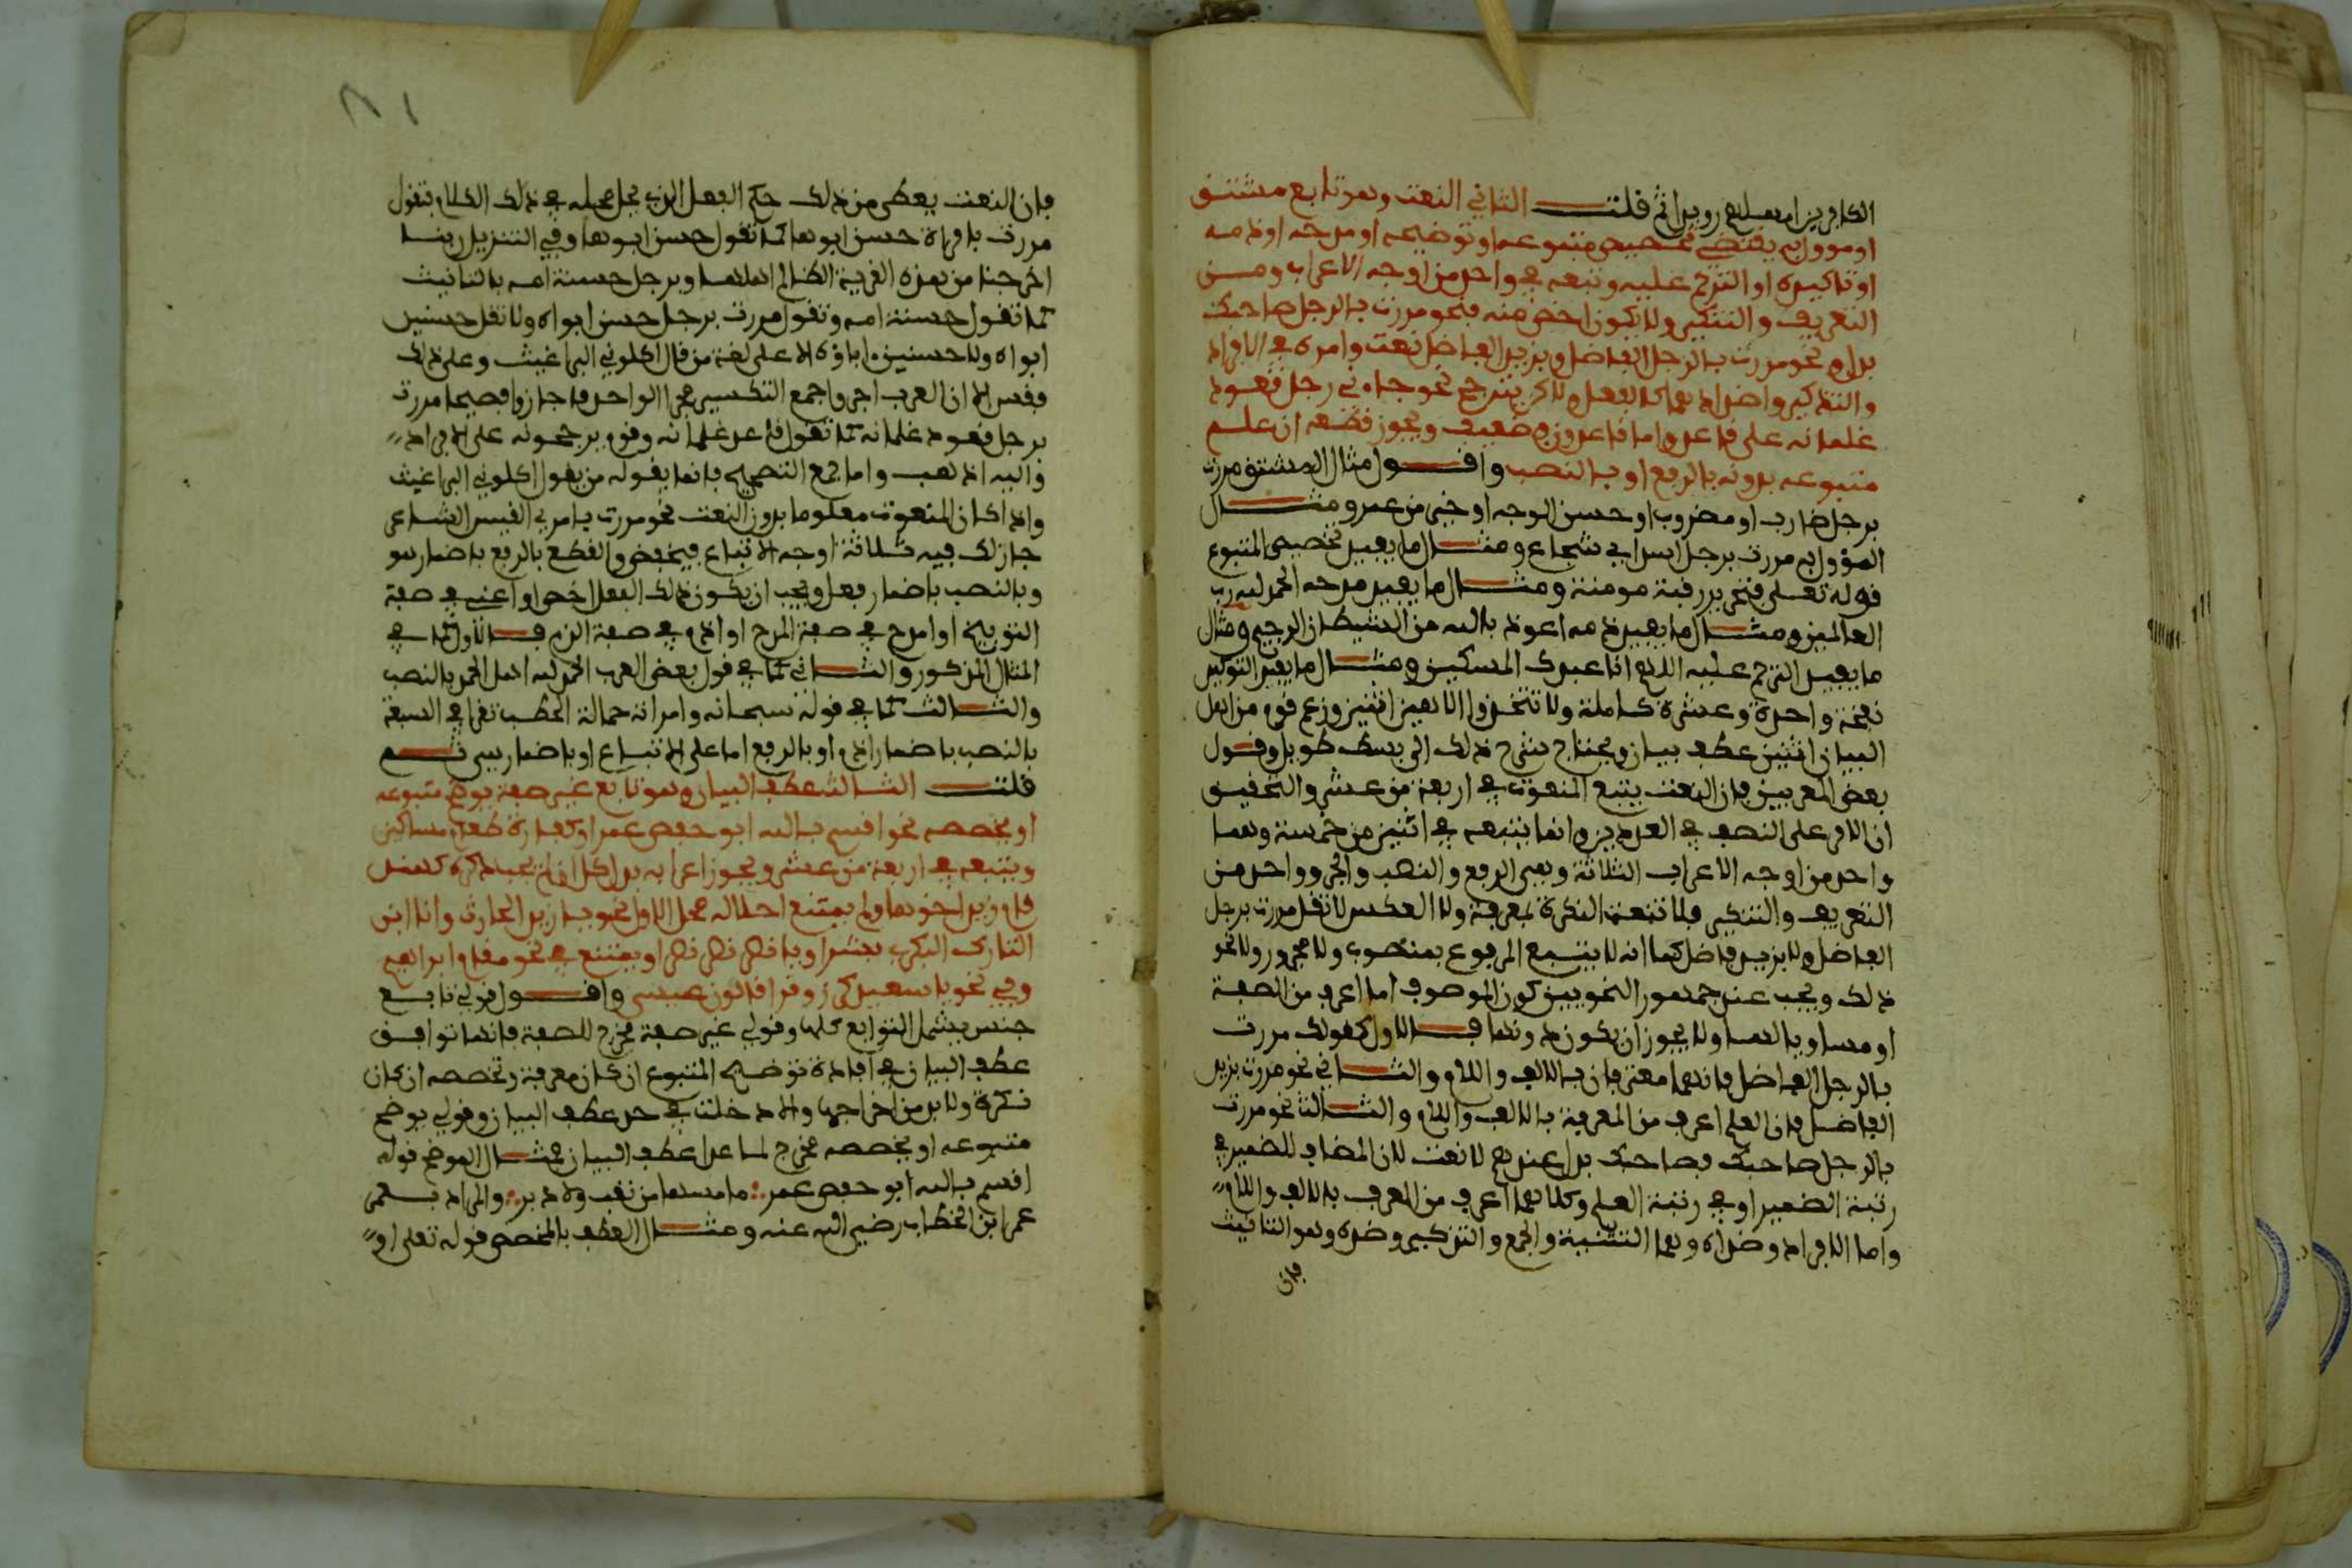 الكافرين امهلهم رويدا ثم قلت الثاني النعت وهو تابع مشتق
او موول به يفيد تخصيص متبوعه او توضيحه او مدحه او ذمه
او تاكيده او الترحم عليه ويتبعه في واحد من اوجه الاعراب ومن
التعريف والتنكير ولا يكون اخص منه فنحو مررت بالرجل صاحبك
بدل ونحو مررت بالرجل الفاضل وبزيد الفاضل نعت وامره في الافراد
والتذكير واضدادهما كالفعل ولاكن يترجح نحو جاءني رجل قعود
غلمانه على قاعد واما قاعدون فضعيف ويجوز قطعه ان علم
متبوعه بدونه بالرفع او بالنصب واقول مثال المشتق مررت
برجل ضارب او مضروب او حسن الوجه او خير من عمرو ومثال
المؤول به مررت برجل اسد اي شجاع ومثال ما يفيد تخصيص المتبوع
قوله تعلى فتحرير رقبة مومنة ومثال ما يفيد مدحه الحمد لله رب
العالمين ومثال ما يفيد ذمه اعوذ بالله من الشيطان الرجيم ومثال
ما يفيد الترحم عليه اللهم انا عبدك المسكين ومثال ما يفيد التوكيد
نفخة واحدة وعشرة كاملة ولا تتخذوا الاهين اثنين وزعم قوم من اهل
البيان ان اثنين عطف بيان ويحتاج شرح ذلك الى بسط طويل وقول
بعض المعربين فان النعت يتبع المنعوت في اربعة من عشر والتحقيق
ان الامر على النصف في العددين وانما يتبعه في اثنين من خمسة وهما
واحد من اوجه الاعراب الثلاثة وهي الرفع والنصب والجر وواحد من
التعريف والتنكير فلا تنعت النكرة بمعرفة ولا العكس لا تقل مررت برجل
الفاضل ولا بزيد فاضل كما انه لا يتبع المرفوع بمنصوب ولا مجرور ولا نحو
ذلك ويجب عند جمهور النحويين كون الموصوف اما اعرف من الصفة
او مساويا لها ولا يجوز ان يكون دونها فالاول كقولك مررت
بالرجل الفاضل فانهما معرفان بالالف واللام والثاني نحو مررت بزيد
الفاضل فان العلم اعرف من المعرفة بالالف واللام والثالث نحو مررت
بالرجل صاحبك فصاحبك بدل عندهم لا نعت لان المضاف للضمير في
رتبة الضمير او في رتبة العلم وكلاهما اعرف من المعرف بالالف واللام
واما الافراد وضداه وهما التثنية والجمع والتذكير وضده وهو التانيث
فان
فان النعت يعطى من ذلك حكم الفعل الذي يحل محله في ذلك الكلام فتقول
مررت بامراة حسن ابوها كما تقول حسن ابوها وفي التنزيل ربنا
اخرجنا من هذه القرية الظالم اهلها وبرجل حسنة امه بالتانيث
كما تقول حسنت امه وتقول مررت برجل حسن ابواه ولا تقل حسنين
ابواه ولا حسنين اباؤه الا على لغة من قال اكلوني البراغيث وعلى ذلك
فقس الا ان العرب اجروا جمع التكسير مجرا الواحد فاجازوا فصيحا مررت
برجل قعود غلمانه كما تقول قاعد غلمانه وقوم يرجحونه على الافراد
واليه اذهب واما جمع التصحيح فانما يقوله من يقول اكلوني البراغيث
واذا كان المنعوت معلوما بدون النعت نحو مررت بامرئ القيس الشاعر
جاز لك فيه ثلاثة اوجه الاتباع فيخفض والقطع بالرفع باضمار هو
وبالنصب باضمار فعل ويجب ان يكون ذلك الفعل اخص او اعني في صفة
التوبيخ او امدح في صفة المدح او اذم في صفة الذم فالاول كما في
المثال المذكور والثاني كما في قول بعض العرب الحمد لله اهل الحمد بالنصب
والثالث كما في قوله سبحانه وامراته حمالة الحطب تقرا في السبعة
بالنصب باضمار اذم او بالرفع اما على الاتباع او باضمار هي ثم
قلت الثالث عطف البيان وهو تابع غير صفة يوضح متبوعه
او يخصصه نحو اقسم بالله ابو حفص عمر او كفارة طعام مساكين
ويتبعه في اربعة من عشر ويجوز اعرابه بدل كل ان لم يجب ذكره كهند
قام زيد اخوها ولم يمتنع احلاله محل الاول نحو يا زيد الحارث وانا ابن
التارك البكري بشر او يا نصر نصر نصرا ويمتنع في نحو مقام ابراهيم
وفي نحو يا سعيد كرز وقرا قالون عيسى واقول قولي تابع
جنس يشمل التوابع كلها وقولي غير صفة مخرج للصفة فانها توافق
عطف البيان في افادة توضيح المتبوع ان كان معرفة وتخصصه ان كان
نكرة ولا بد من اخراجها والا دخلت في حد عطف البيان وقولي يوضح
متبوعه او يخصصه مخرج لما عدا عطف البيان فمثال الموضح قوله
اقسم بالله ابو حفص عمر ∴ ما مسها من نقب ولا دبر ∴ والمراد بعمر
عمر ابن الخطاب رضي الله عنه ومثال العطف بالمخصص قوله تعلى او